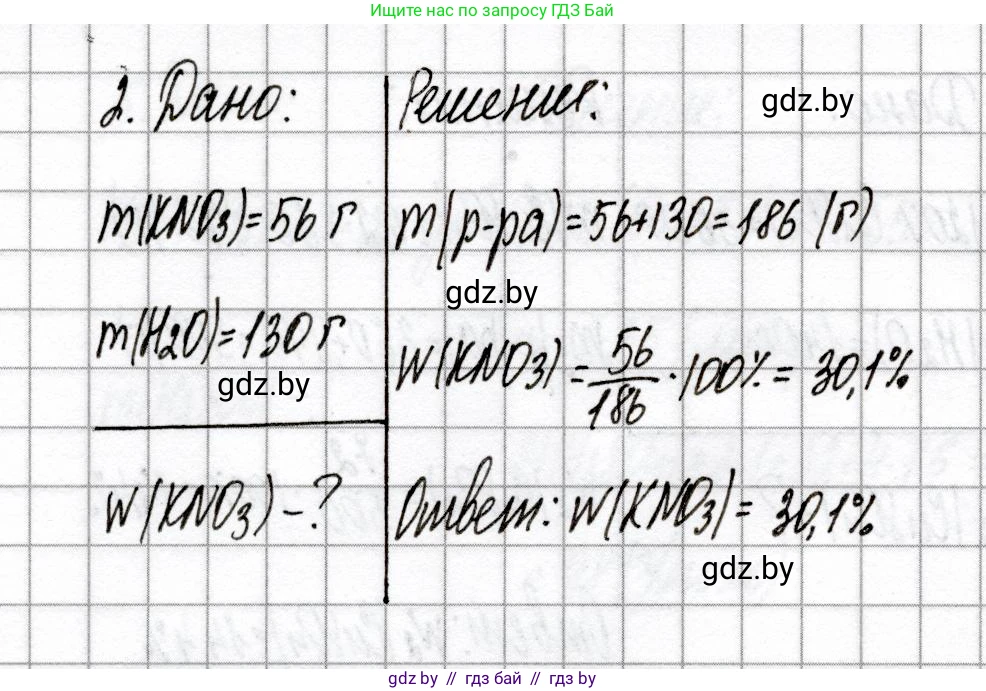 Ищите нас по запросу ГДЗ Бай
2. Дано:
Решение:
gdz.by
m(KNO3)=56 г
m(р-ра)=56+130=186 (г)
gdz.by
m(H2O)=130 г
gdz.by
W(KNO3) = 56/186 · 100% = 30,1%
W(KNO3) - ?
Ответ: W(KNO3) = 30,1%
gdz.by
gdz.by // гдз бай // gdz.by